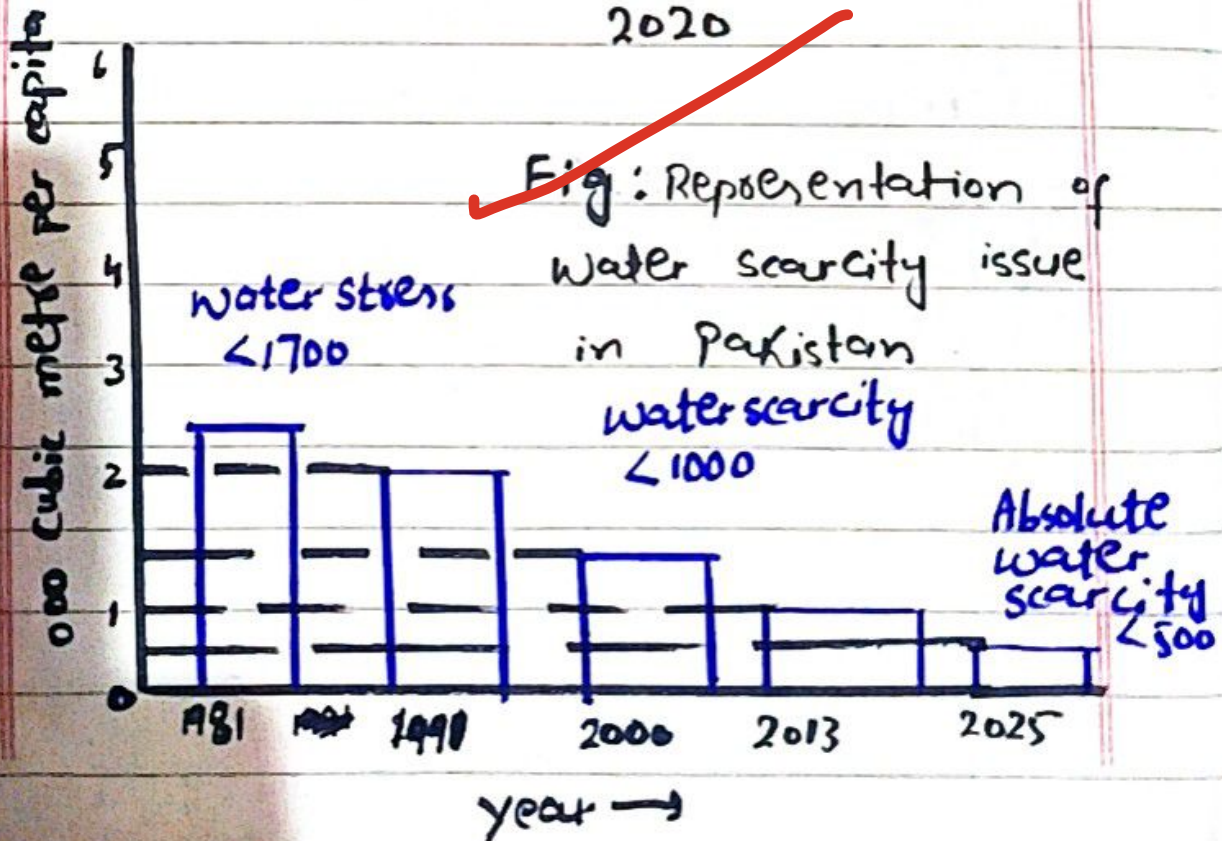 2020
000 cubic metre per capita
6
5
4
3
2
1
0
Fig: Representation of
water scarcity issue
in Pakistan
water stress
<1700
water scarcity
<1000
Absolute
water
scarcity
<500
1981 1991 2000 2013 2025
year →